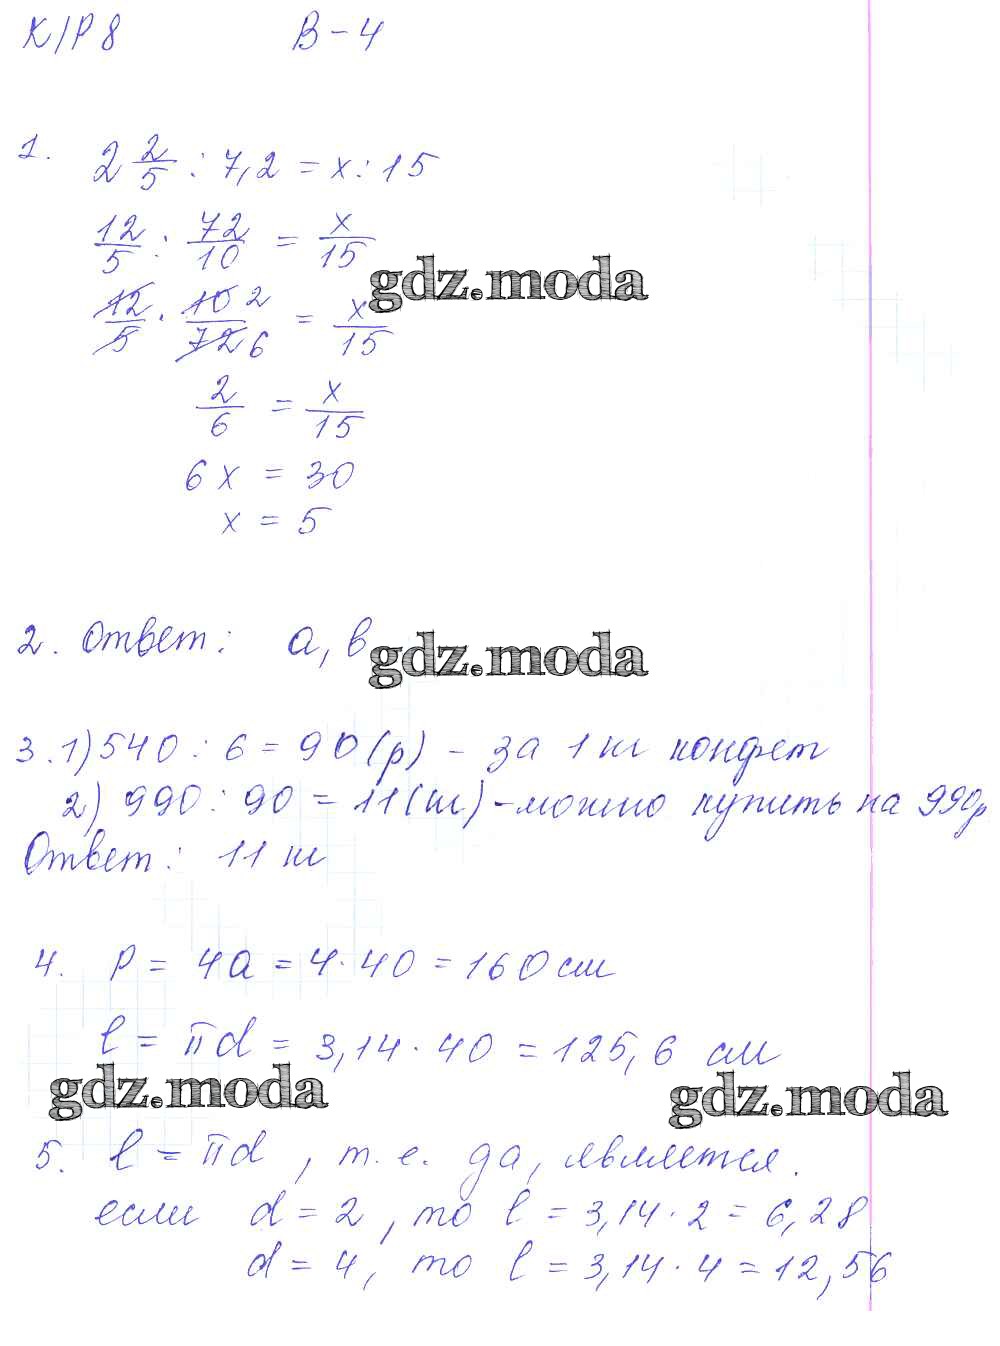 К/Р 8 В-4
1. 2 2/5 : 7,2 = x : 15
12/5 : 72/10 = x/15
gdz.moda
12/5 · 10/72 2 6 = x/15
2/6 = x/15
6x = 30
x = 5
2. Ответ: а, в
gdz.moda
3. 1) 540 : 6 = 90 (р) - за 1 кг конфет
2) 990 : 90 = 11 (кг) - можно купить на 990р
Ответ: 11 кг
4. P = 4a = 4·40 = 160 см
l = πd = 3,14 · 40 = 125,6 см
gdz.moda gdz.moda
5. l = πd, т.е. да, является.
если d = 2, то l = 3,14 · 2 = 6,28
d = 4, то l = 3,14 · 4 = 12,56